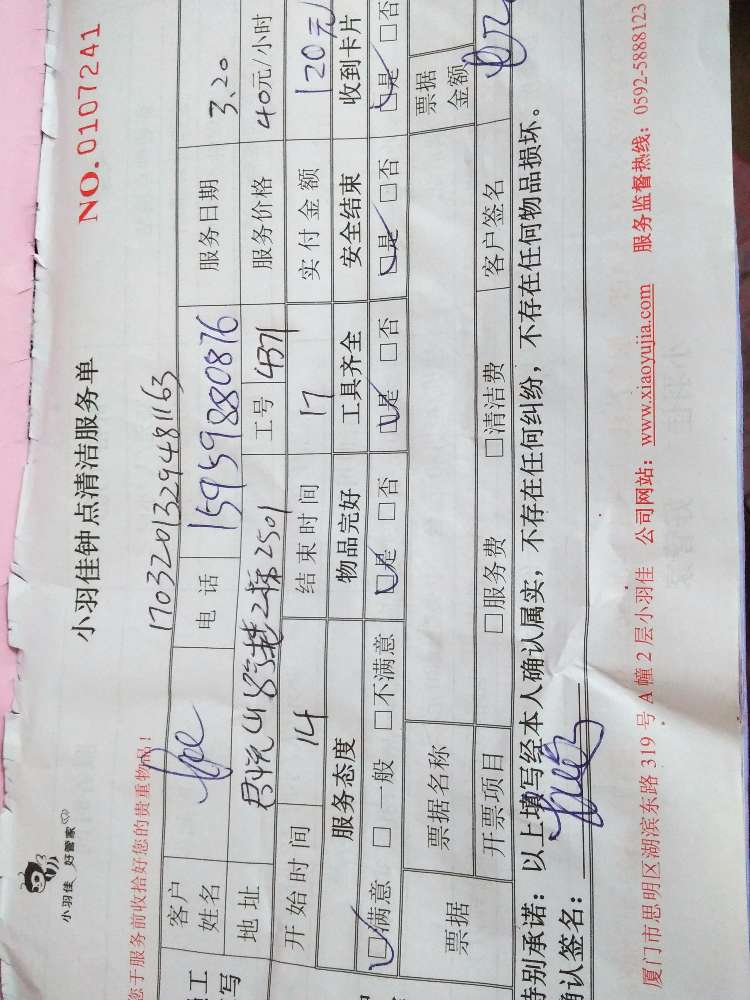 小羽佳 好管家
小羽佳钟点清洁服务单
NO.0107241
您于服务前收拾好您的贵重物品！
1703201329481163
客户姓名 电话 15959880876 服务日期 3.20
地址 2501 工号 4371 服务价格 40元/小时
开始时间 14 结束时间 17 实付金额 120元
服务态度 物品完好 工具齐全 安全结束 收到卡片
☑满意 □一般 □不满意 ☑是 □否 ☑是 □否 ☑是 □否 ☑是 □否
票据 票据名称 票据金额
开票项目 □服务费 □清洁费 客户签名
特别承诺：以上填写经本人确认属实，不存在任何纠纷，不存在任何物品损坏。
确认签名：
厦门市思明区湖滨东路 319 号 A 幢 2 层小羽佳 公司网站：www.xiaoyujia.com 服务监督热线：0592-5888123